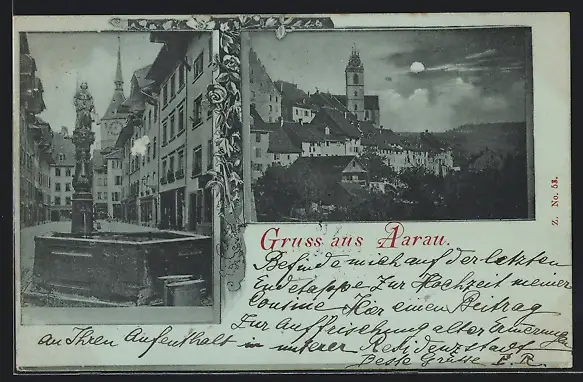 Gruss aus Aarau.
Z. No. 53.
Befinde mich auf der letzten
Endetappe Zur Hochzeit meiner
Cousine Hier einen Beitrag
Zur Auffrischung alter Erinnerungen
an Ihren Aufenthalt in unserer Residenzstadt
Beste Grüsse E. R.